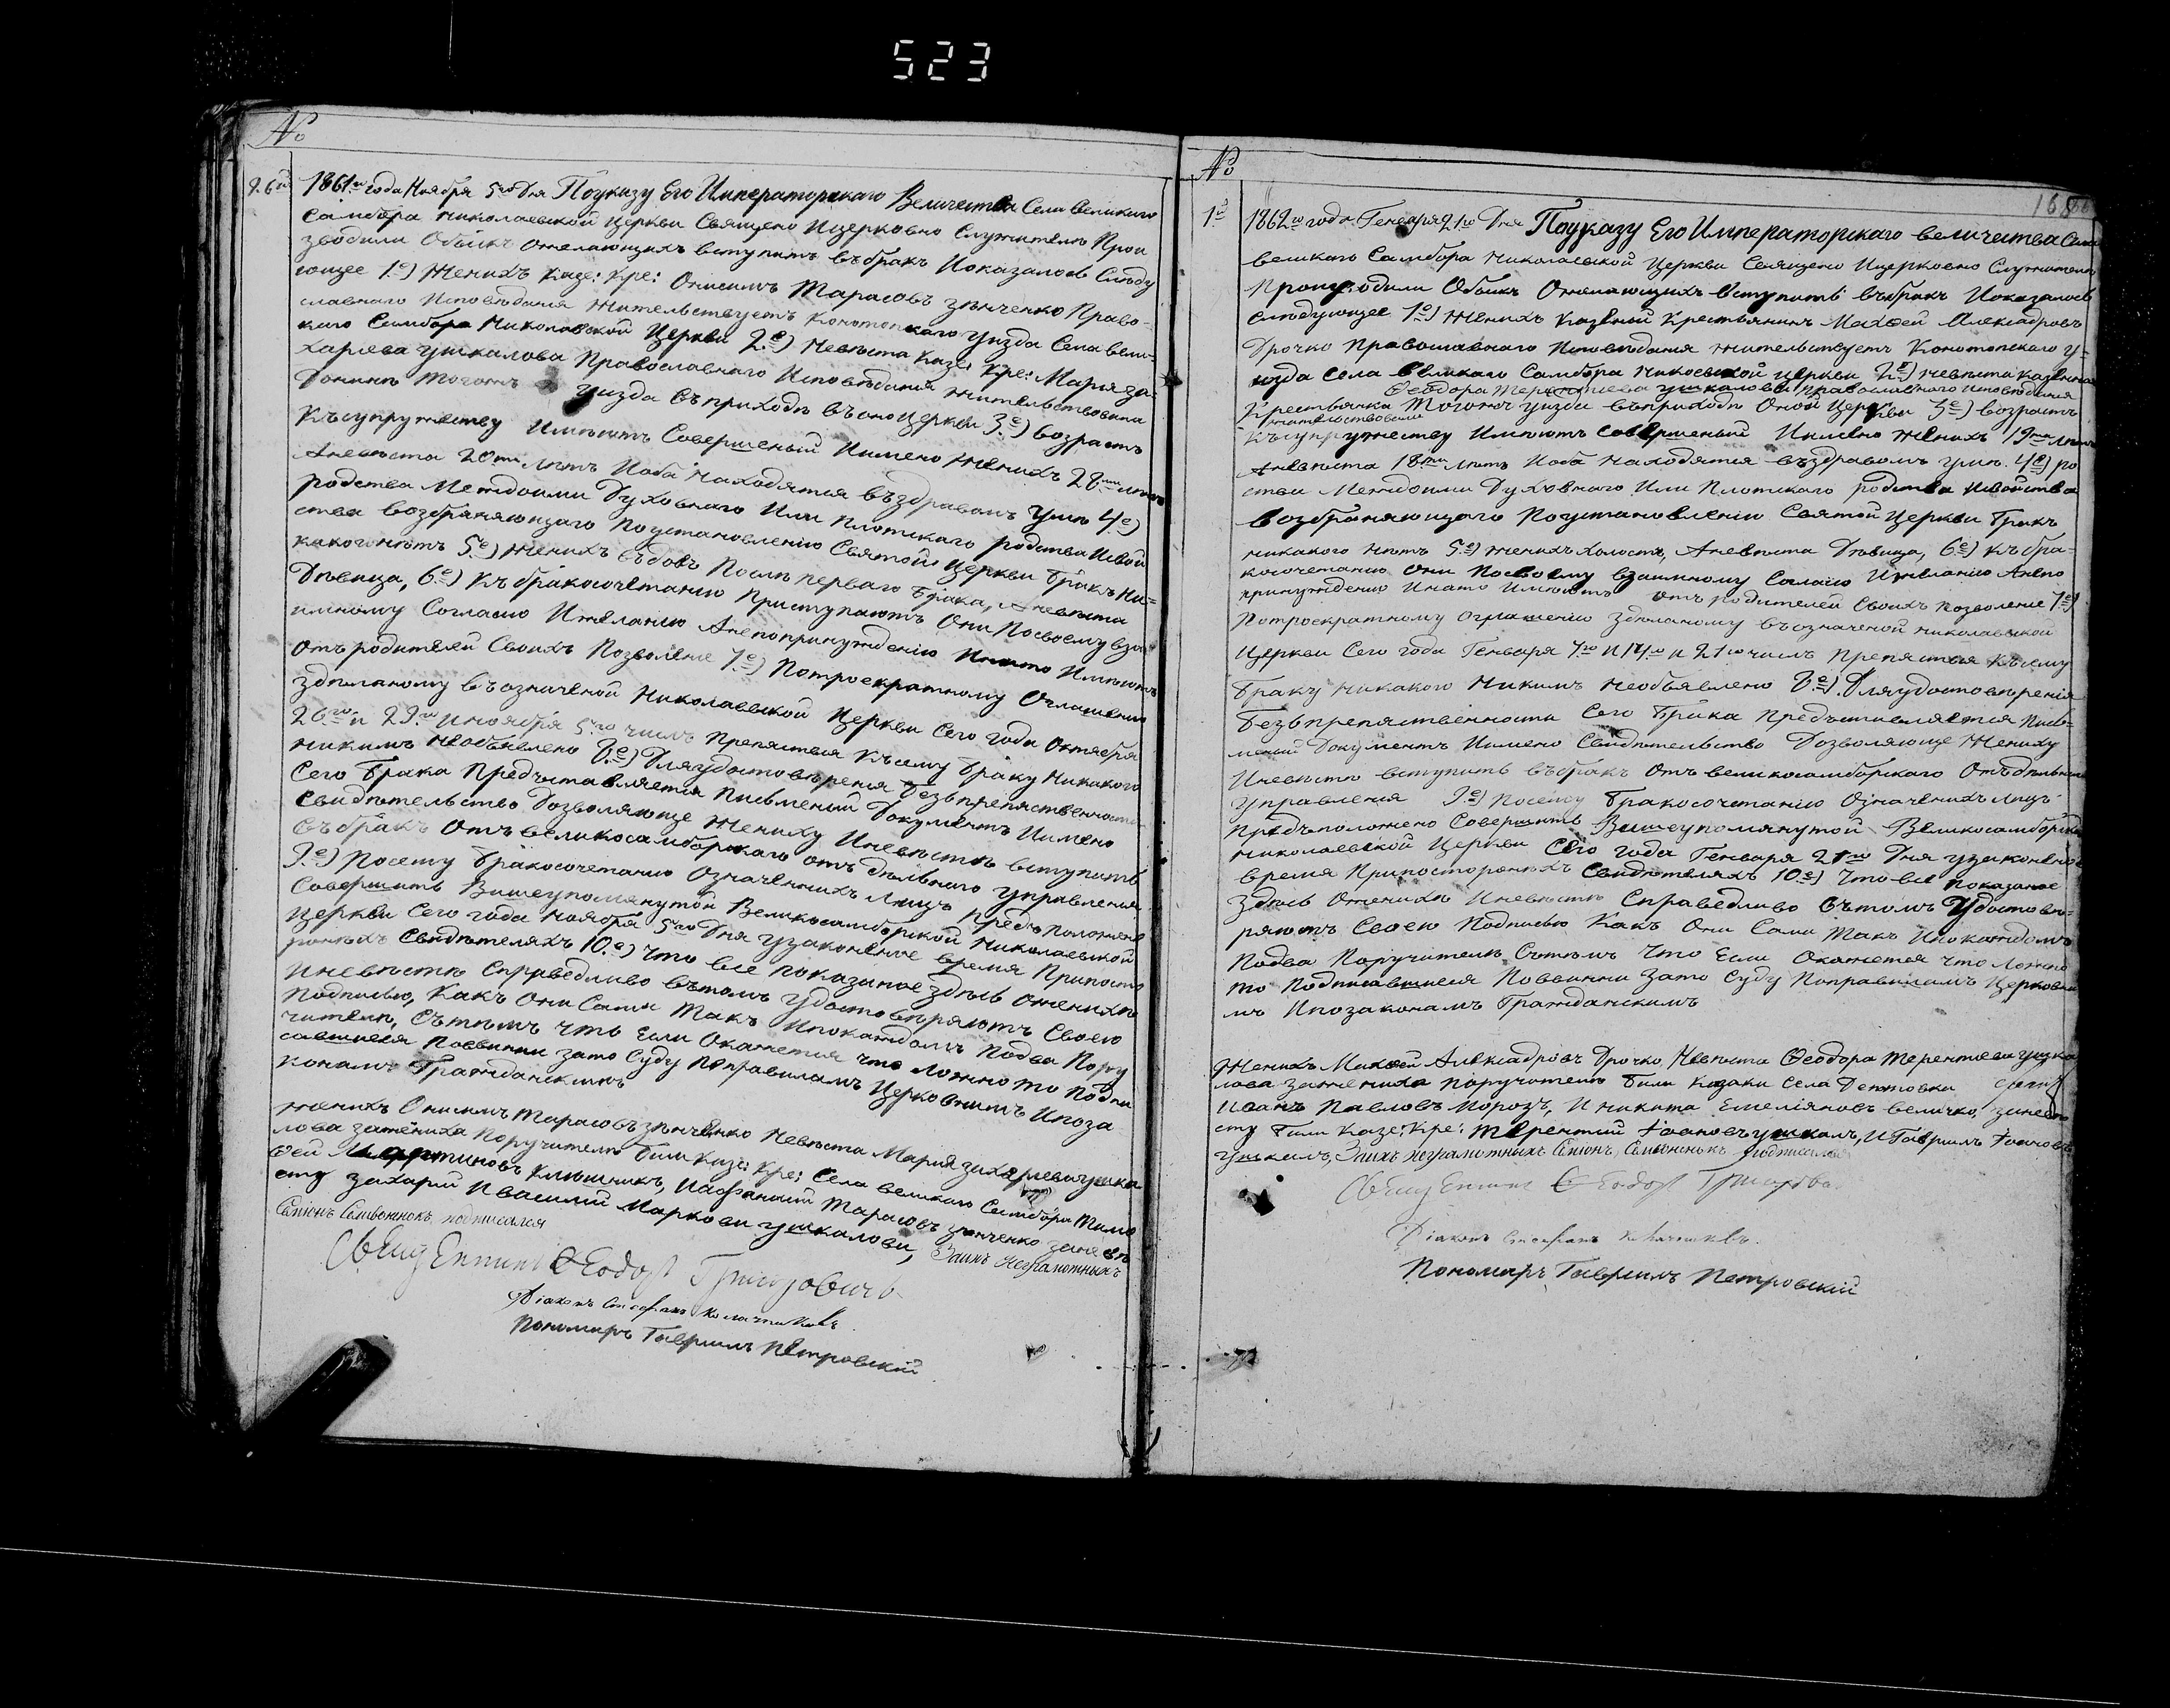 523
№
26й 1861го года Ноября 5го Дня Поуказу Его Императорскаго Величества Села Великого
Самбора Николаевской Церкви Священо Ицерковно Служители Прои
зводили Обыскъ Ожелающихъ вступить въбракъ Ипоказалось Слѣду
ющее 1е) Женихъ Казе: Кре: Онисимъ Тарасовъ Зѣнченко Право-
славнаго Исповѣдания Жительствуетъ Конотопскаго уизда Села вели-
каго Самбора Николаевской Церкви 2е) Невѣста Казе: Кре: Мария За-
харіева ушкалова Православнаго Исповѣдания Жительствовала
Донинѣ Тогожъ уизда Въприходѣ въоной Церкви 3е) возрастъ
Къ супружеству Имѣютъ Совершеный Имено Женихъ 28ми лѣтъ
Аневѣста 20ти лѣтъ Иоба Находятся въздравомъ умѣ 4е)
родства Междоими Духовнаго Или Плотскаго родства Исвой
ства возбраняющаго Поустановленію Святой Церкви Бракъ Ни-
какого нѣтъ 5е) Женихъ въдовъ Послѣ перваго брака, Аневѣста
Дѣвица, 6е) Къ бракосочетанию Приступаютъ Они Посвоему вза
имному Согласию Ижеланію Анепопринуждению Инато Имѣютъ
Отъ родителей Своихъ Позволение 7е) Потроекратному Оглашению
здѣланому въозначеной Николаевской Церкви Сего года Октября
26го и 29го Иноября 5го числъ Препяствия Късему браку Никакого
Никимъ Необъявлено 8е) Дляудостовѣрения безъпрепяственности
Сего Брака Предъставляется Письменый Документъ Имено
Свидѣтельство Дозволяюще Жениху Иневѣстѣ вступить
Въбракъ Отъ великосамборскаго отъдѣльнаго управления
9е) Посему бракосочетанию Означенихъ Лицъ Предъположено
Совершить Вишеупомянутой Великосамборской Николаевской
Церкви Сего года Ноября 5го Дня узаконеное время Припосто
роннихъ Свидѣтеляхъ 10е) Что все показаное здѣсь Оженихѣ
Иневѣстѣ Справедливо вътомъ удостовѣряютъ Своею
Подписью, Какъ Они Сами Такъ Ипокаждомъ Подва Пору
чителѣ, Сътѣмъ что Если Окажется что Ложно то Подпи
савшиеся Повинни зато Суду Поправиламъ Церковнимъ Ипоза
конамъ Гражданскимъ
Женихъ Онисимъ Тарасовъ Зѣнченко Невѣста Мария Захариева ушка
лова Зажениха Поручители били Казе: Кре: Села великаго Самбора Тимо
фей Мартиновъ Ключникъ, Иафанасий Тарасовъ Зѣнченко Заневѣ
сту Захарий Ивасилий Маркови ушкалови, Заихъ Неграмотныхъ
Симонъ Самвоненокъ подписался
Священникъ Феодоръ Григоровичъ
Діаконъ Стефанъ Колачниковъ
Пономарь Гаврилъ Петровскій
№
168
1й 1862го года Генваря 21го Дня Поуказу Его Императорскаго величества Села
великаго Самбора Николаевской Церкви Священо Ицерковно Служители
Производили Обыскъ Ожелающихъ вступить въбракъ Ипоказалось
Слѣдующее 1е) Женихъ Казеный Крестьянинъ Махвей Александровъ
Дрочко Православнаго Исповѣдания Жительствуетъ Конотопскаго у-
изда Села Великаго Самбора Никоевской Церкви 2е) Невѣста Казенная
Феодора Терентиева ушкалова Православного Исповѣдания
Крестьянка Тогожъ уизда въприходѣ Оной Церкви 3е) возрастъ
жительствовала
Късупружеству Имѣютъ Совершеный Имено Женихъ 19ти лѣтъ
Аневѣста 18ти лѣтъ Иоба Находятся въздравомъ умѣ. 4е) ро
ства Междоими Духовнаго Или Плотскаго родства Исвойства
Возбраняющаго Поустановленію Святой Церкви Бракъ
Никакого Нѣтъ 5е) Женихъ Холостъ, Аневѣста Дѣвица, 6е) Къ бра-
косочетанию Они Посвоему взаимному Согласию Ижеланию Анепо
принуждению Инато Имѣютъ Отъ родителей Своихъ Позволение 7е)
Потроекратному оглашению Здѣланому въозначеной Николаевской
Церкви Сего года Генваря 7го И 14го и 21го числъ Препяствия Късему
Браку Никакого Никимъ Необъявлено 8е) Дляудостовѣрения
Безъпрепяственности Сего Брака Предъставляется Пись-
меный Документъ Имено Свидѣтельство Дозволяюще Жениху
Иневѣстѣ вступить въбракъ Отъ великосамборскаго Отъдѣльнаго
Управления 9е) Посему Бракосочетанию Означенихъ Лицъ
Предъположено Совершить Вишеупомянутой Великосамборской
Николаевской Церкви Сего года Генваря 21го Дня узаконеное
Время Припосторонихъ Свидѣтеляхъ 10е) Что все показаное
Здѣсь Оженихѣ Иневѣстѣ Справедливо вътомъ Удостовѣ-
ряютъ Своею Подписью Какъ Они Сами Такъ Ипокаждомъ
Подва Поручителѣ Сътѣмъ Что Если Окажется что Ложно
то Подписавшиеся Повинни Зато Суду Поправиламъ Церковни
мъ Ипозаконамъ Гражданскимъ
Женихъ Махвей Александровъ Дрочко, Невѣста Феодора Терентиева ушка
лова Зажениха Поручители Били Казаки Села Дептовки
Иванъ Павловъ Морозъ, И Никита Емеліяновъ величко, Заневѣ
сту Били Казе: Кре: Терентий Іоановъ ушкалъ, И Гаврилъ Іоановъ
ушкалъ, Заихъ Неграмотныхъ Симонъ Самвоненокъ Подписался
Священникъ Феодоръ Григорович
Діаконъ Стефанъ Колачниковъ.
Пономарь Гаврилъ Петровскій